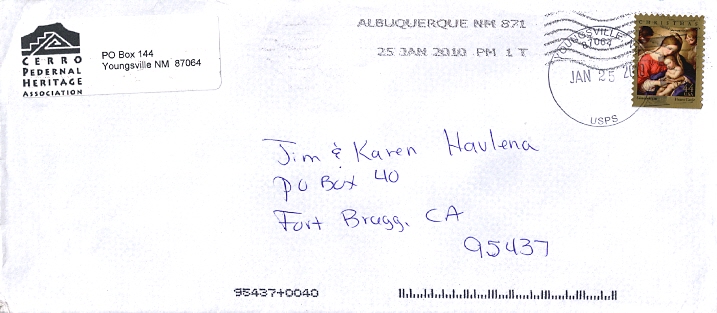 CERRO
PEDERNAL
HERITAGE
ASSOCIATION
PO Box 144
Youngsville NM 87064
ALBUQUERQUE NM 871
25 JAN 2010 PM 1 T
YOUNGSVILLE
87064
JAN 25
USPS
CHRISTMAS
44
Jim & Karen Havlena
PO Box 40
Fort Bragg, CA
95437
95437+0040